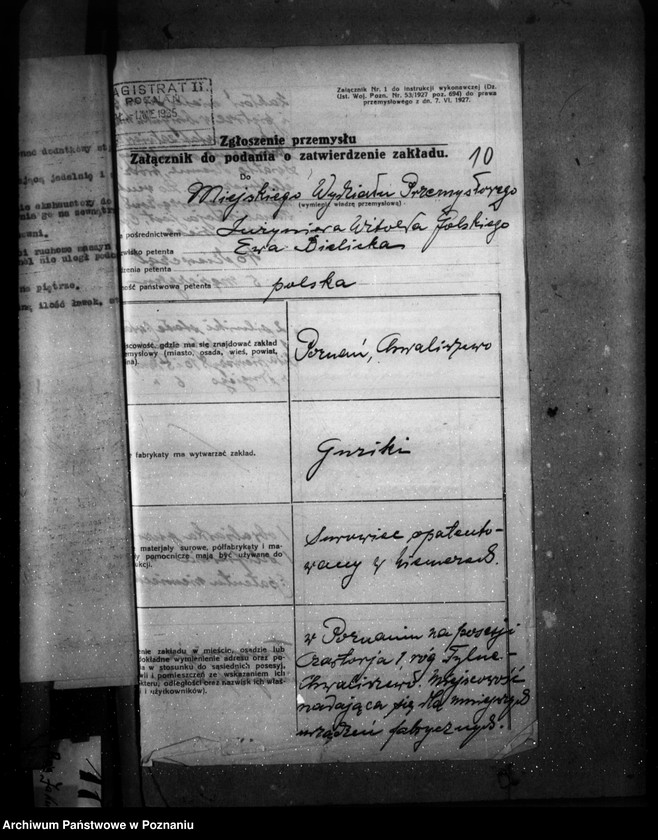 MAGISTRAT II.
POZNAŃ
1935
Załącznik Nr. 1 do instrukcji wykonawczej (Dz.
Ust. Woj. Pozn. Nr. 53/1927 poz. 694) do prawa
przemysłowego z dn. 7. VI. 1927.
Zgłoszenie przemysłu
Załącznik do podania o zatwierdzenie zakładu.
10
Do
Miejskiego Wydziału Przemysłowego
(wymienić władzę przemysłową)
pośrednictwem Inżyniera Witolda Polskiego
wisko petenta Ewa Bielicka
dzenia petenta
ność państwowa petenta polska
scowość, gdzie ma się znajdować zakład
emysłowy (miasto, osada, wieś, powiat,
na).
Poznań, Chwaliszewo
fabrykaty ma wytwarzać zakład.
Guziki
materjały surowe, półfabrykaty i ma-
ły pomocnicze mają być używane do
ukcji.
Surowiec opatento-
wany w Niemczech.
enie zakładu w mieście, osadzie lub
dokładne wymienienie adresu oraz po-
a w stosunku do sąsiednich posesyj,
wli i pomieszczeń ze wskazaniem ich
kteru, odległości oraz nazwisk ich właś-
i użytkowników).
w Poznaniu na posesji
Czartorja 1, róg Tylne-
Chwaliszewo. Miejscowość
nadająca się dla mniejszych
urządzeń fabrycznych.
dodatkowy
jącą jadalnię i
ekshaustory do
nia go na zewnątrz
wni.
ruchome maszyn
nie uległ
piętrze.
ilość ławek,
Archiwum Państwowe w Poznaniu